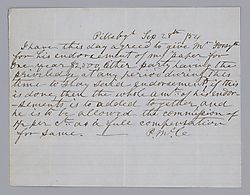 Pittsbgh Sep 28th /54
I have this day agreed to give Mr
for his endorsement of my paper for
one year $2,500 either party having the
priviledge at any period during this
time to Stop Said endorsement, if this
is done, then the whole amt of his endor-
sements is to added together and
he is to be allowed the commission of
per ct as a full compensation
for same.